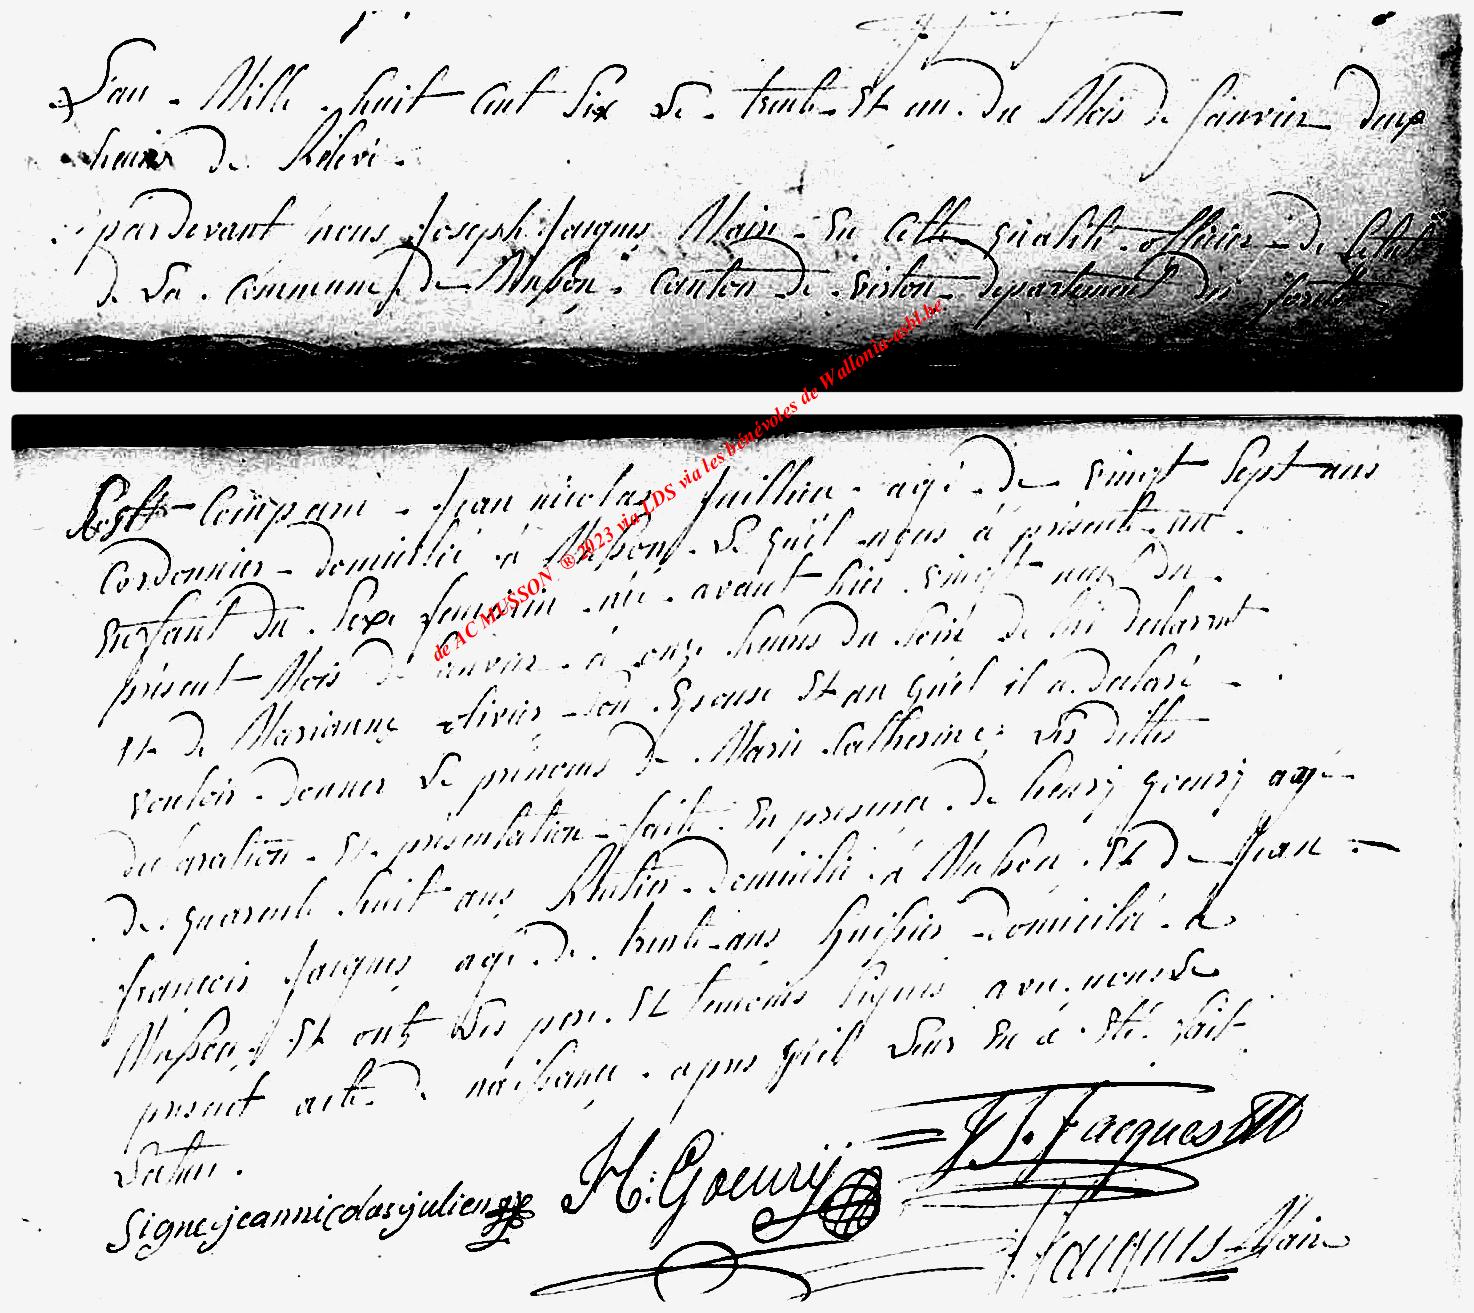 L'an Mille huit cent six Le trente Et un du Mois de Janvier deux
heures de Rélevé.
pardevant nous Joseph Jacques Maire En cette qualité officier de L'état
de La Commune de Musson Canton de virton departement des forêts
Est Comparu Jean nicolas Juillien agé de vingt Sept ans
Cordonnier domicilié á Musson Le quel nous á présenté un
Enfant du Sexe feminin né avant hier vingt neuf du
présent Mois de janvier á onze heures du Soir de lui declarant
Et de Marianne olivier Son Epouse Et au quel il a declaré
vouloir donner Le prénoms de Marie Catherine; Les dittes
declaration Et présentation faite En presence de henry goeury agé
de quarente huit ans Rentier domicilié á Musson Et de Jean
françois Jacques agé de trente ans huissier domicilié á
Musson, Et ont Les pere Et temoins signés avec nous Le
present acte de naissance apres qu'il Leur En á Eté fait
Lecture.
Signe jean nicolas julien H: Goeurÿ J f. Jacques
Jacques Maire
de AC MUSSON ® 2023 via LDS via les bénévoles de Wallonia-asbl.be